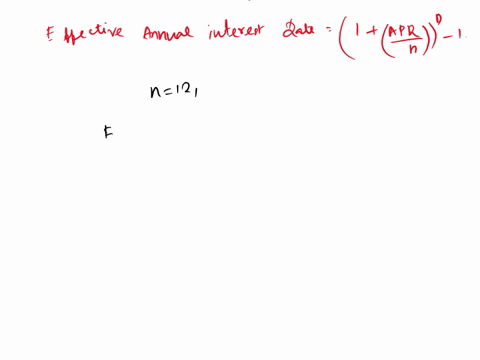 Effective Annual interest Rate = (1 + (APR/n))^n - 1.
n=12,
E